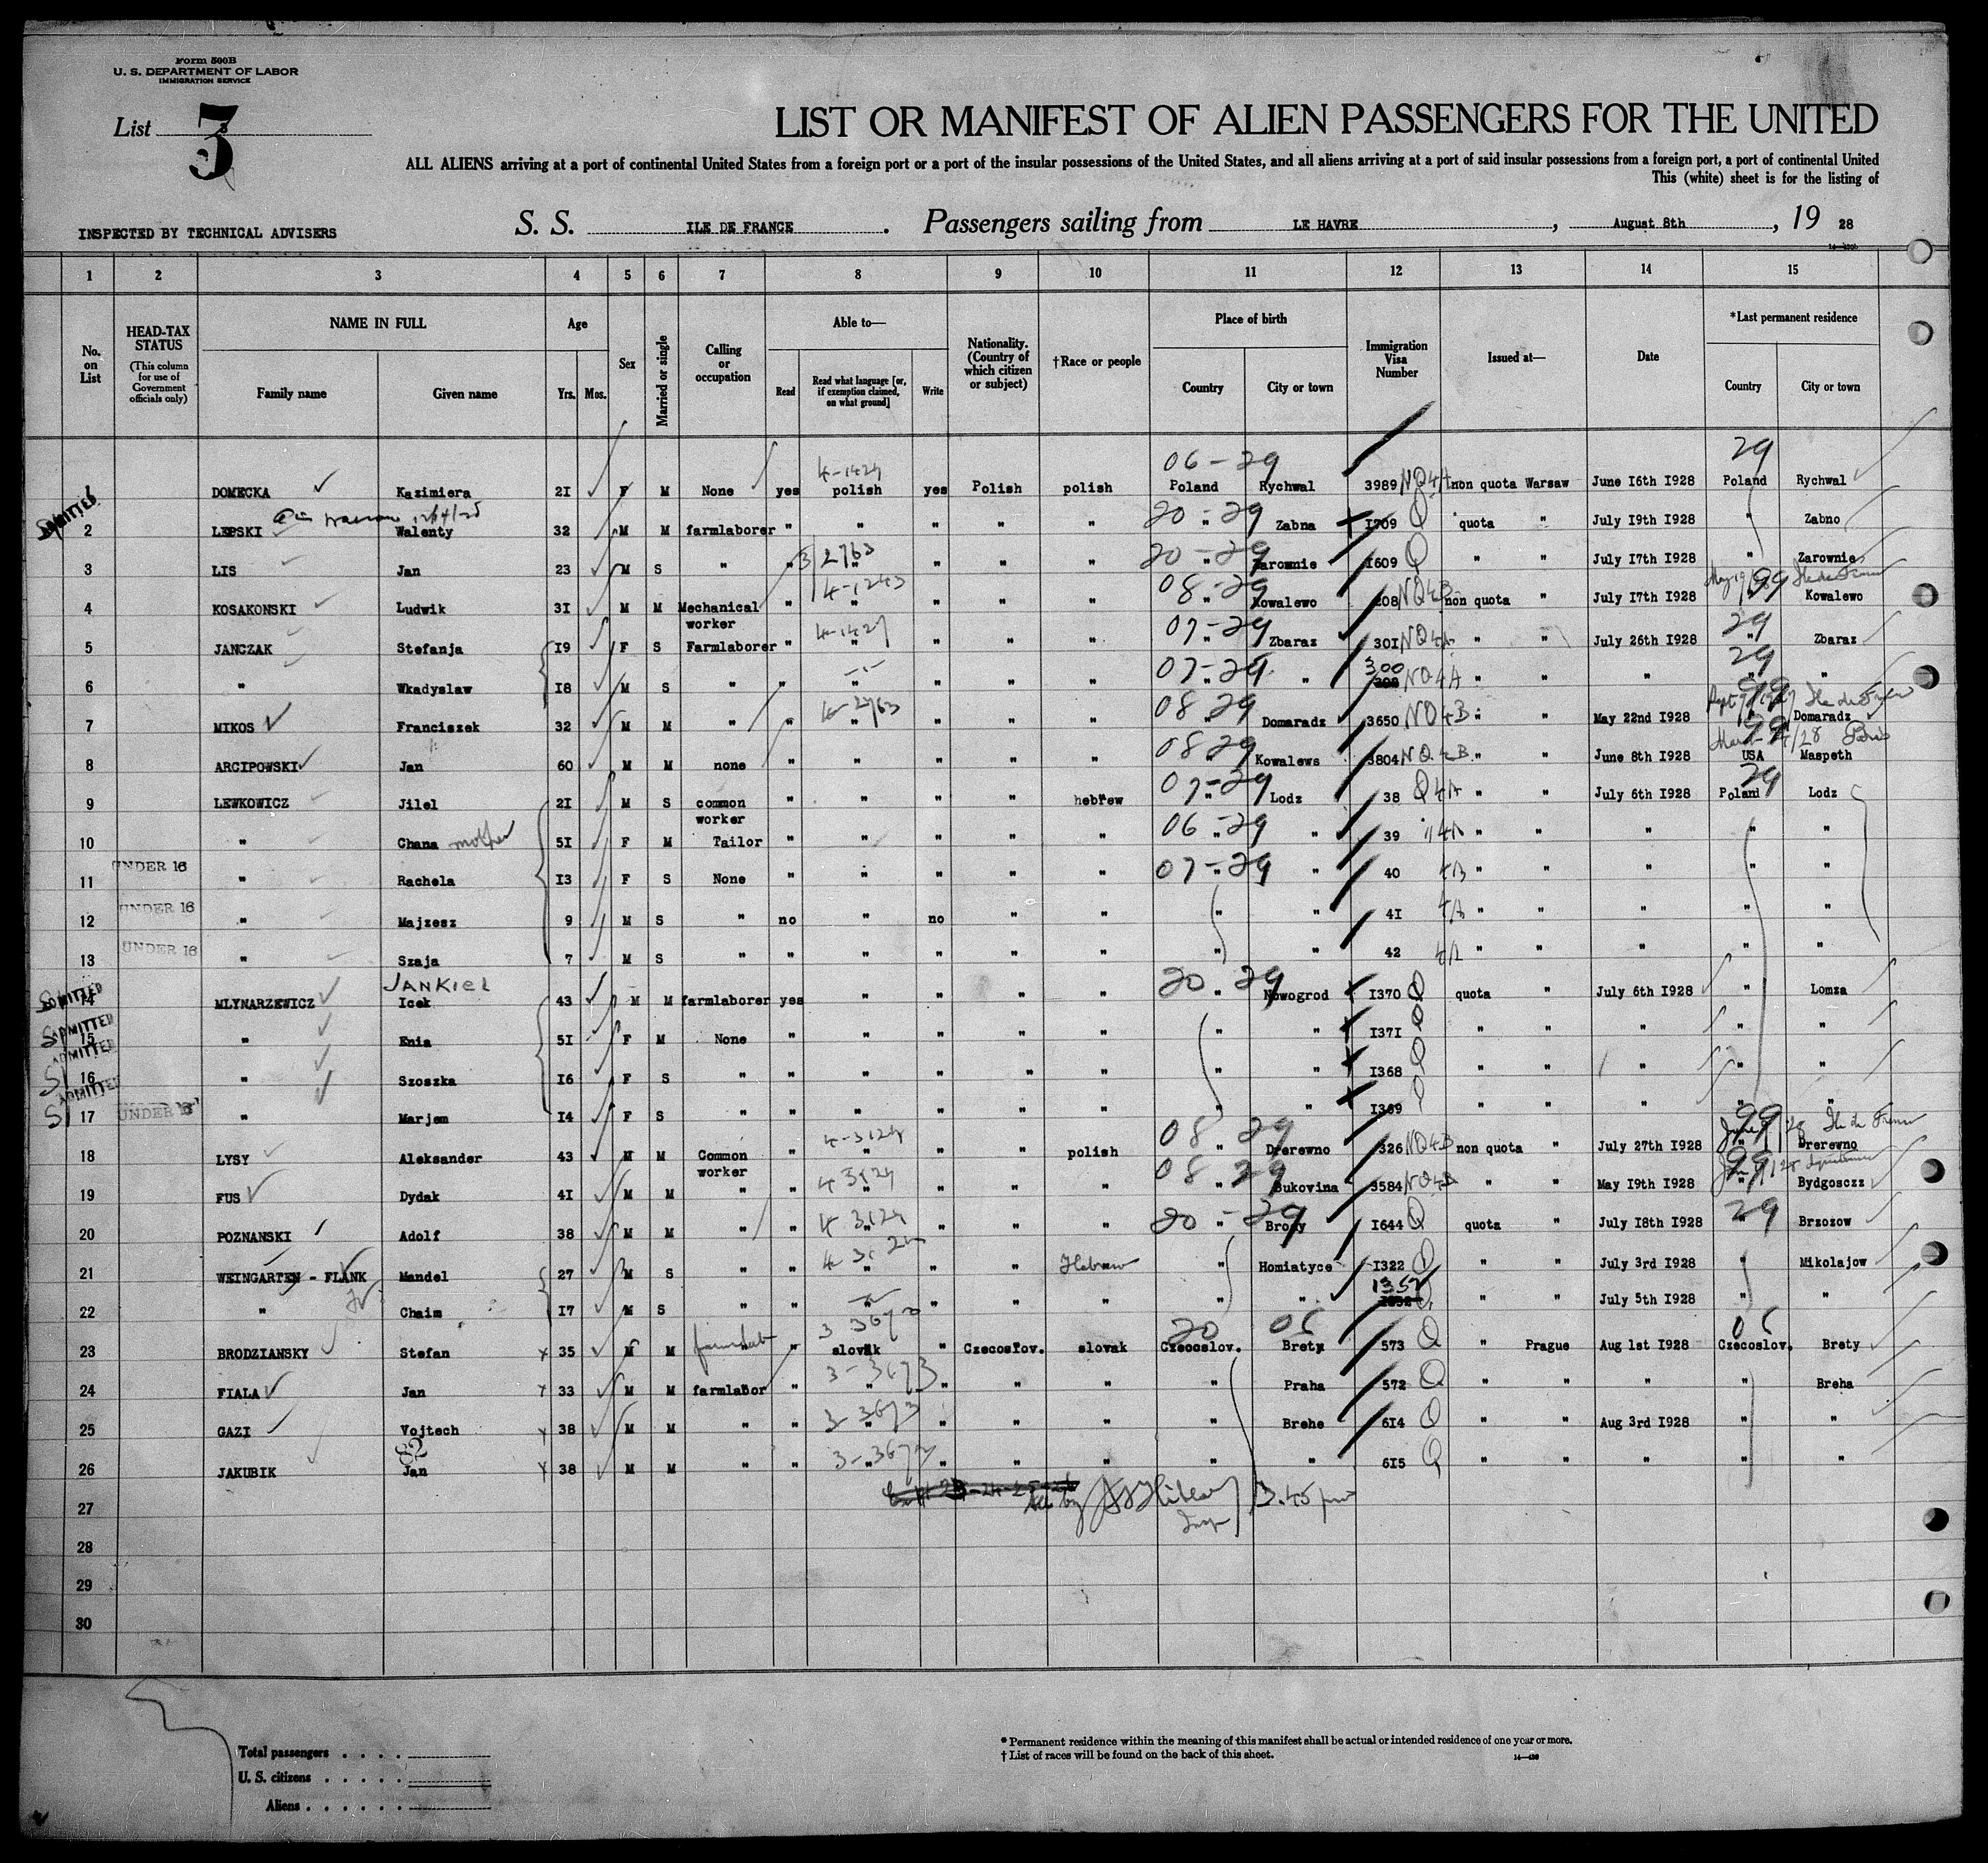 Form 500B
U. S. DEPARTMENT OF LABOR
IMMIGRATION SERVICE
List 3
LIST OR MANIFEST OF ALIEN PASSENGERS FOR THE UNITED
ALL ALIENS arriving at a port of continental United States from a foreign port or a port of the insular possessions of the United States, and all aliens arriving at a port of said insular possessions from a foreign port, a port of continental United
This (white) sheet is for the listing of
INSPECTED BY TECHNICAL ADVISERS S. S. ILE DE FRANCE. Passengers sailing from LE HAVRE, August 8th, 19 28
1 2 3 4 5 6 7 8 9 10 11 12 13 14 15
No. on List
HEAD-TAX STATUS (This column for use of Government officials only)
NAME IN FULL Family name Given name
Age Yrs. Mos.
Sex
Married or single
Calling or occupation
Able to— Read Read what language [or, if exemption claimed, on what ground] Write
Nationality. (Country of which citizen or subject)
†Race or people
Place of birth Country City or town
Immigration Visa Number
Issued at—
Date
*Last permanent residence Country City or town
4-1429 06 - 29 29
1 DOMECKA Kazimiera 21 F M None yes polish yes Polish polish Poland Rychwal 3989 NQ4A non quota Warsaw June 16th 1928 Poland Rychwal
ADMITTED 2 LEPSKI Walenty 32 M M farmlaborer " " " " " 20 - 29 " Zabna 1709 Q quota " July 19th 1928 " Zabno
3 LIS Jan 23 M S " " 2763 " " " " 20 - 29 " Zarownie 1609 Q " " July 17th 1928 " Zarownie
4 KOSAKONSKI Ludwik 31 M M Mechanical worker " 4-1243 " " " " 08 - 29 " Kowalewo 208 NQ4B non quota " July 17th 1928 99 Kowalewo
5 JANCZAK Stefanja 19 F S Farmlaborer " 4-1427 " " " " 07 - 29 " Zbaraz 301 NQ4A " " July 26th 1928 29 " Zbaraz
6 " Wkadyslaw 18 M S " " " " " " 07 - 29 " " 300 NQ4A " " " 29 " "
7 MIKOS Franciszek 32 M M " " 4-2763 " " " " 08 29 " Domaradz 3650 NQ4B " " May 22nd 1928 99 Domaradz
8 ARCIPOWSKI Jan 60 M M none " " " " " 08 29 " Kowalews 3804 NQ4B " " June 8th 1928 99 USA Maspeth
9 LEWKOWICZ Jilel 21 M S common worker " " " " hebrew 07 - 29 " Lodz 38 Q4A " " July 6th 1928 29 Poland Lodz
10 " Chana mother 51 F M Tailor " " " " " 06 - 29 " " 39 "4A " " " " "
UNDER 16 11 " Rachela 13 F S None " " " " " 07 - 29 " " 40 " " " " "
UNDER 16 12 " Majzesz 9 M S " no " no " " " " 41 " " " " "
UNDER 16 13 " Szaja 7 M S " " " " " " " " 42 " " " " "
JANKIEL
ADMITTED 14 MLYNARZEWICZ Icek 43 M M farmlaborer yes " " " " 20 29 " Nowogrod 1370 Q quota " July 6th 1928 " Lomza
ADMITTED 15 " Enia 51 F M None " " " " " " " 1371 Q " " " " "
ADMITTED 16 " Szoszka 16 F S " " " " " " " " 1368 Q " " " " "
ADMITTED 17 UNDER 16 " Marjem 14 F S " " " " " " " " 1369 " " " " "
18 LYSY Aleksander 43 M M Common worker " 4-3124 " " " polish 08 29 " Drerewno 326 NQ4B non quota " July 27th 1928 99 " Drerewno
19 FUS Dydak 41 M M " " 4 3124 " " " " 08 29 Bukovina 3584 NQ4B " " May 19th 1928 99 " Bydgosczz
20 POZNANSKI Adolf 38 M M " " 4 3124 " " " " 20 - 29 " Brody 1644 Q quota " July 18th 1928 29 " Brzozow
21 WEINGARTEN - FLANK Mendel 27 M S " " " " " Hebrew " Homiatyce 1322 Q " " July 3rd 1928 " Mikolajow
22 " Chaim 17 M S " " " " " " " " 1357 " " July 5th 1928 " "
23 BRODZIANSKY Stefan 35 M M " " 3 3673 slovak " Czecoslov. slovak 20 Czecoslov. 05 Brety 573 Q " Prague Aug 1st 1928 05 Czecoslov. Brety
24 FIALA Jan 33 M M farmlabor " 3-3673 " " " " " Praha 572 Q " " " " Breha
25 GAZI Vojtech 38 M M " " 3 3673 " " " " " Brehe 614 Q " " Aug 3rd 1928 " "
26 JAKUBIK Jan 38 M M " " 3-3673 " " " " " " 615 Q " " " " "
3.45 pm
27
28
29
30
Total passengers . . . .
U. S. citizens . . . . .
Aliens . . . . . .
* Permanent residence within the meaning of this manifest shall be actual or intended residence of one year or more.
† List of races will be found on the back of this sheet.